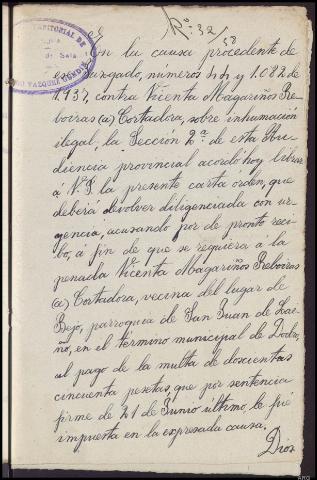 Rº 32/38
En la causa procedente de
ese Juzgado, números 44 y 1.082 de
1.937, contra Vicenta Magariños Re-
boiras (a) Cortadora, sobre inhumación
ilegal, la Sección 2ª de esta Au-
diencia provincial acordó hoy librar
á V.S. la presente carta órden, que
deberá devolver diligenciada con ur-
gencia, acusando por de pronto reci-
bo, á fin de que se requiera a la
penada Vicenta Magariños Reboiras
(a) Cortadora, vecina del lugar de
Bejo, parroquia de San Juan de Lai-
ño, en el término municipal de Dodro,
al pago de la multa de doscientas
cincuenta pesetas, que por sentencia
firme de 21 de Junio último, le fué
impuesta en la expresada causa.
Dios